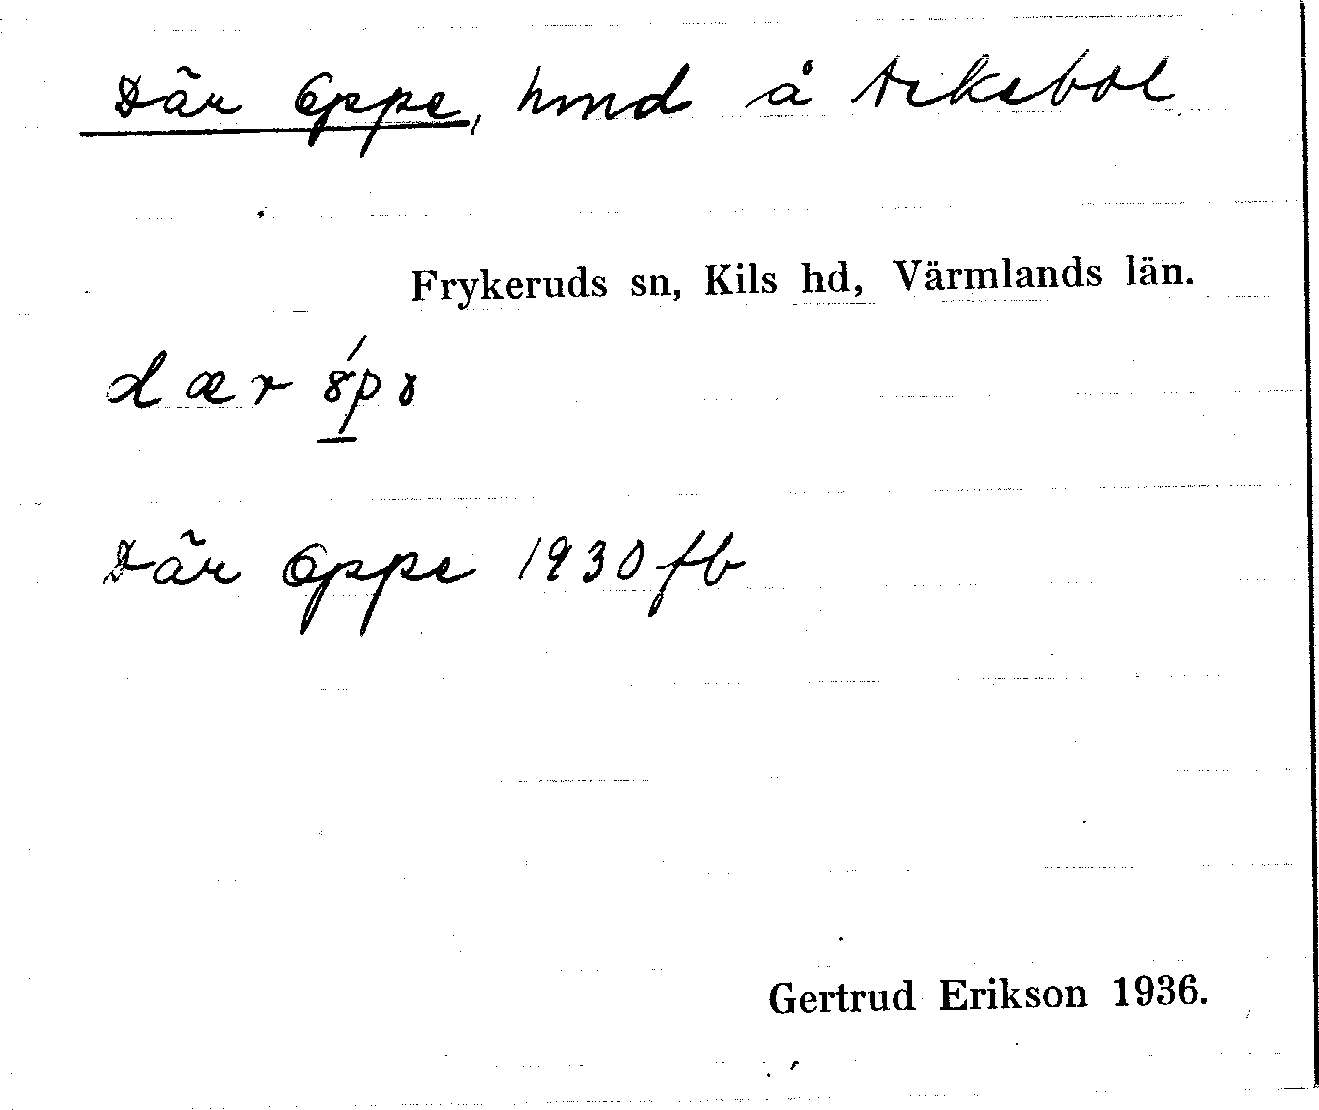 Där Oppe, hmd å Arkebol
Frykeruds sn, Kils hd, Värmlands län.
Där Oppe 1930 fb
Gertrud Erikson 1936.